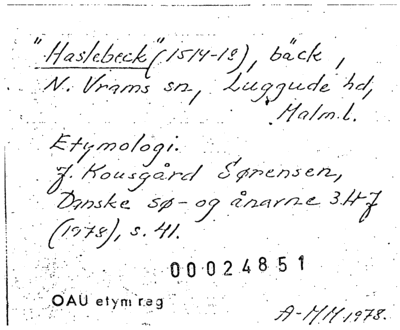 "Haslebeck" (1514-18), bäck,
N. Vrams sn, Luggude hd,
Malm.l.
Etymologi.
J. Kousgård Sørensen,
Danske sø- og ånavne 3. H-J
(1978), s. 41.
00024851
OAU etym reg
A-MM 1978.